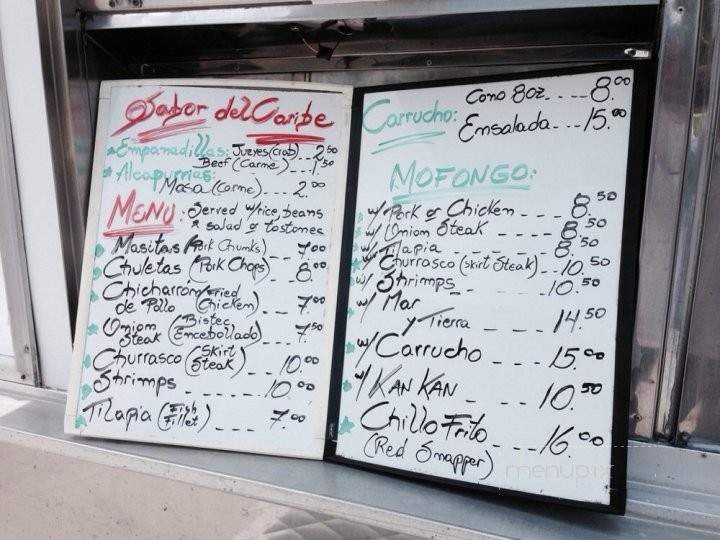 Sabor del Caribe
Empanadillas: Jueyes (Crab) -- 2.50
Beef (Carne) -- 1.50
Alcapurrias:
Masa (Carne) --- 2.00
MENU: Served w/rice, beans
& salad or tostones
Masitas (Pork Chunks) -- 7.00
Chuletas (Pork Chops) -- 8.00
Chicharrón (Fried
de Pollo Chicken) -- 7.00
Oniom (Bistec
Steak Encebollado) -- 7.50
Churrasco (Skirt
Steak) -- 10.00
Shrimps --- 10.00
Tilapia (Fish
Fillet) -- 7.00
Carrucho: Cono 8oz. --- 8.00
Ensalada --- 15.00
MOFONGO:
w/ Pork or Chicken --- 8.50
w/ Oniom Steak --- 8.50
w/ Tilapia --- 8.50
w/ Churrasco (Skirt Steak) -- 10.50
w/ Shrimps --- 10.50
w/ Mar
y Tierra --- 14.50
w/ Carrucho --- 15.00
w/ KAN KAN --- 10.50
Chillo Frito -- 16.00
(Red Snapper)
menupix